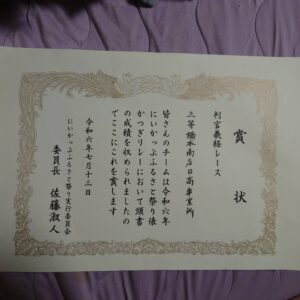 賞状
判官義経レース
三等橋本南店日高事業所
皆さんのチームは令和六年
にいかっぷふるさと祭り俵
かつぎリレーにおいて頭書
の成績を収められましたの
でここにこれを賞します
令和六年七月十三日
にいかっぷふるさと祭り実行委員会
委員長 佐藤淑人